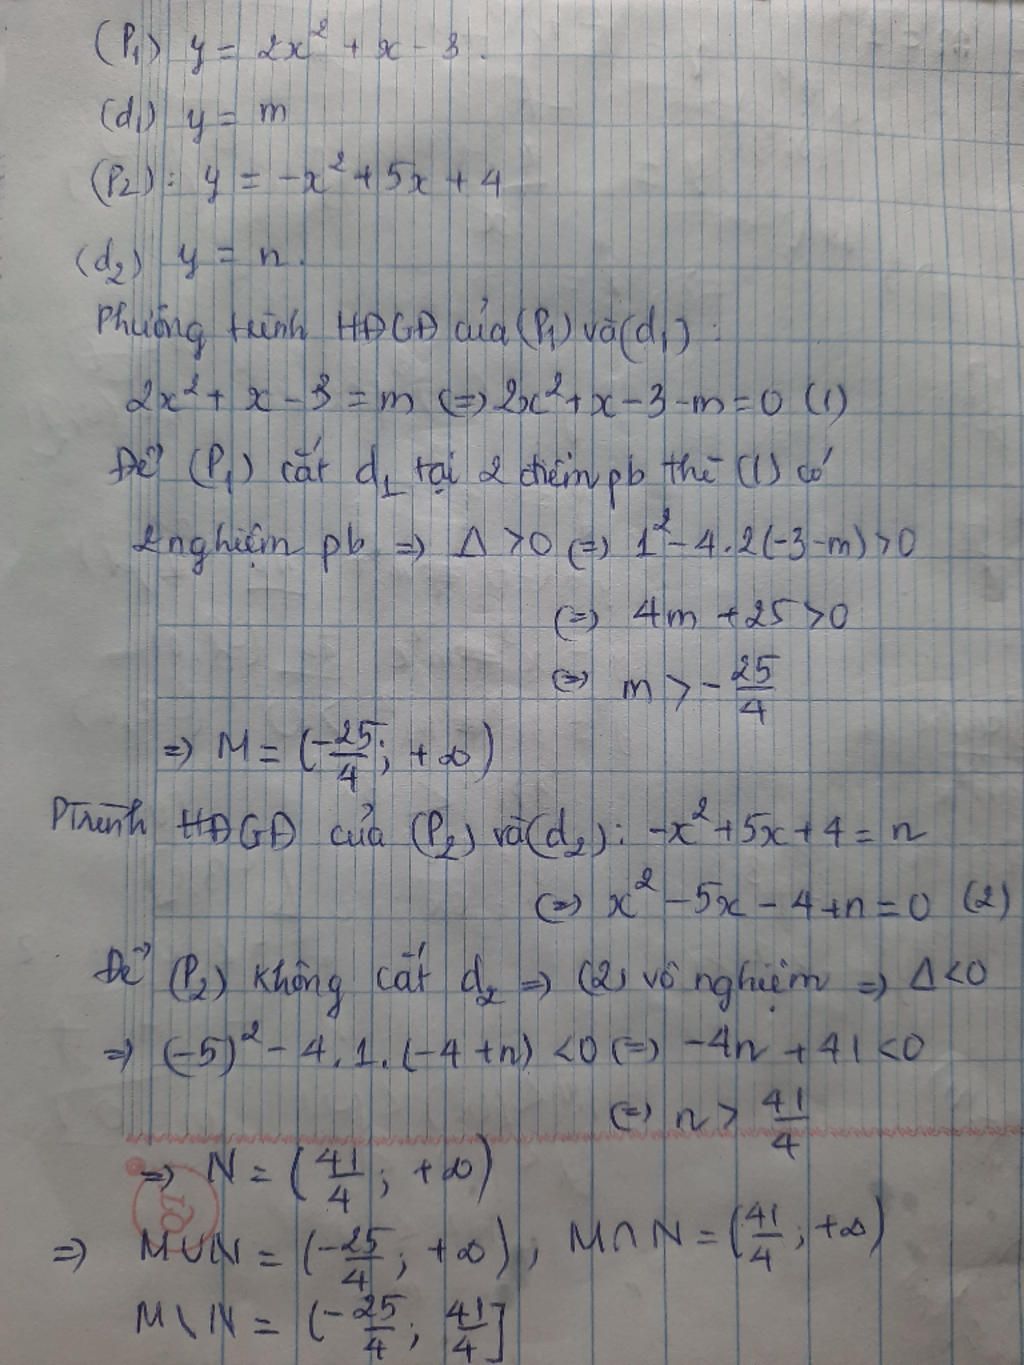 (P₁) y = 2x² + x - 3.
(d₁) y = m
(P₂): y = -x² + 5x + 4
(d₂) y = n.
Phương trình HĐGĐ của (P₁) và (d₁):
2x² + x - 3 = m (=) 2x² + x - 3 - m = 0 (1)
Để (P₁) cắt d₁ tại 2 điểm pb thì (1) có
2 nghiệm pb => Δ > 0 (=) 1² - 4.2(-3-m) > 0
(=) 4m + 25 > 0
(=) m > -25/4
=> M = (-25/4; +∞)
Ptrình HĐGĐ của (P₂) và (d₂): -x² + 5x + 4 = n
(=) x² - 5x - 4 + n = 0 (2)
Để (P₂) không cắt d₂ => (2) vô nghiệm => Δ < 0
=> (-5)² - 4.1.(-4+n) < 0 (=) -4n + 41 < 0
(=) n > 41/4
=> N = (41/4; +∞)
=> M∪N = (-25/4; +∞), M∩N = (41/4; +∞)
M\N = (-25/4; 41/4]